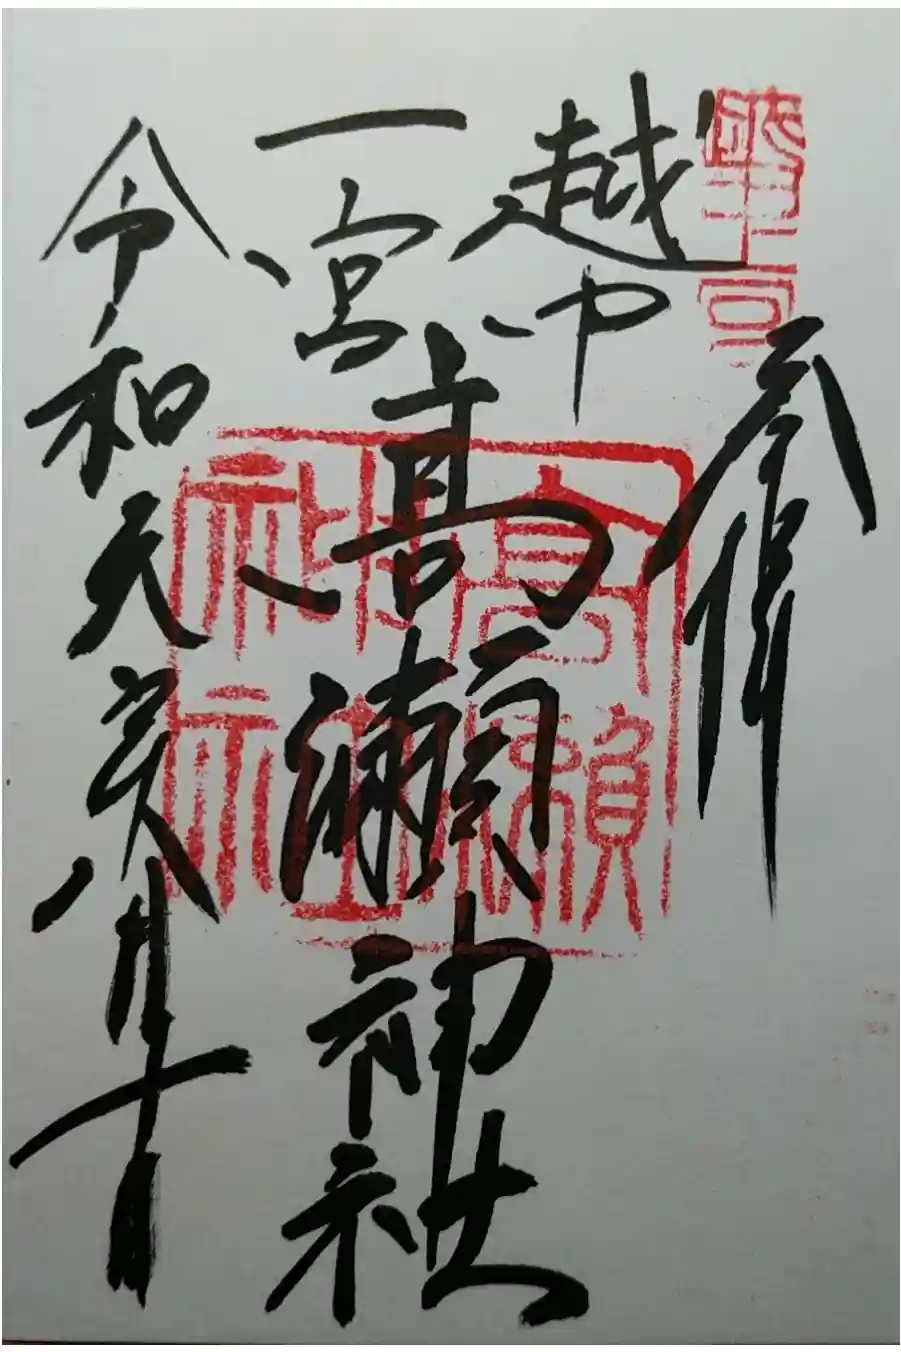 参拝
越中
一宮
高瀬神社
高瀬神社
令和元年八月十日